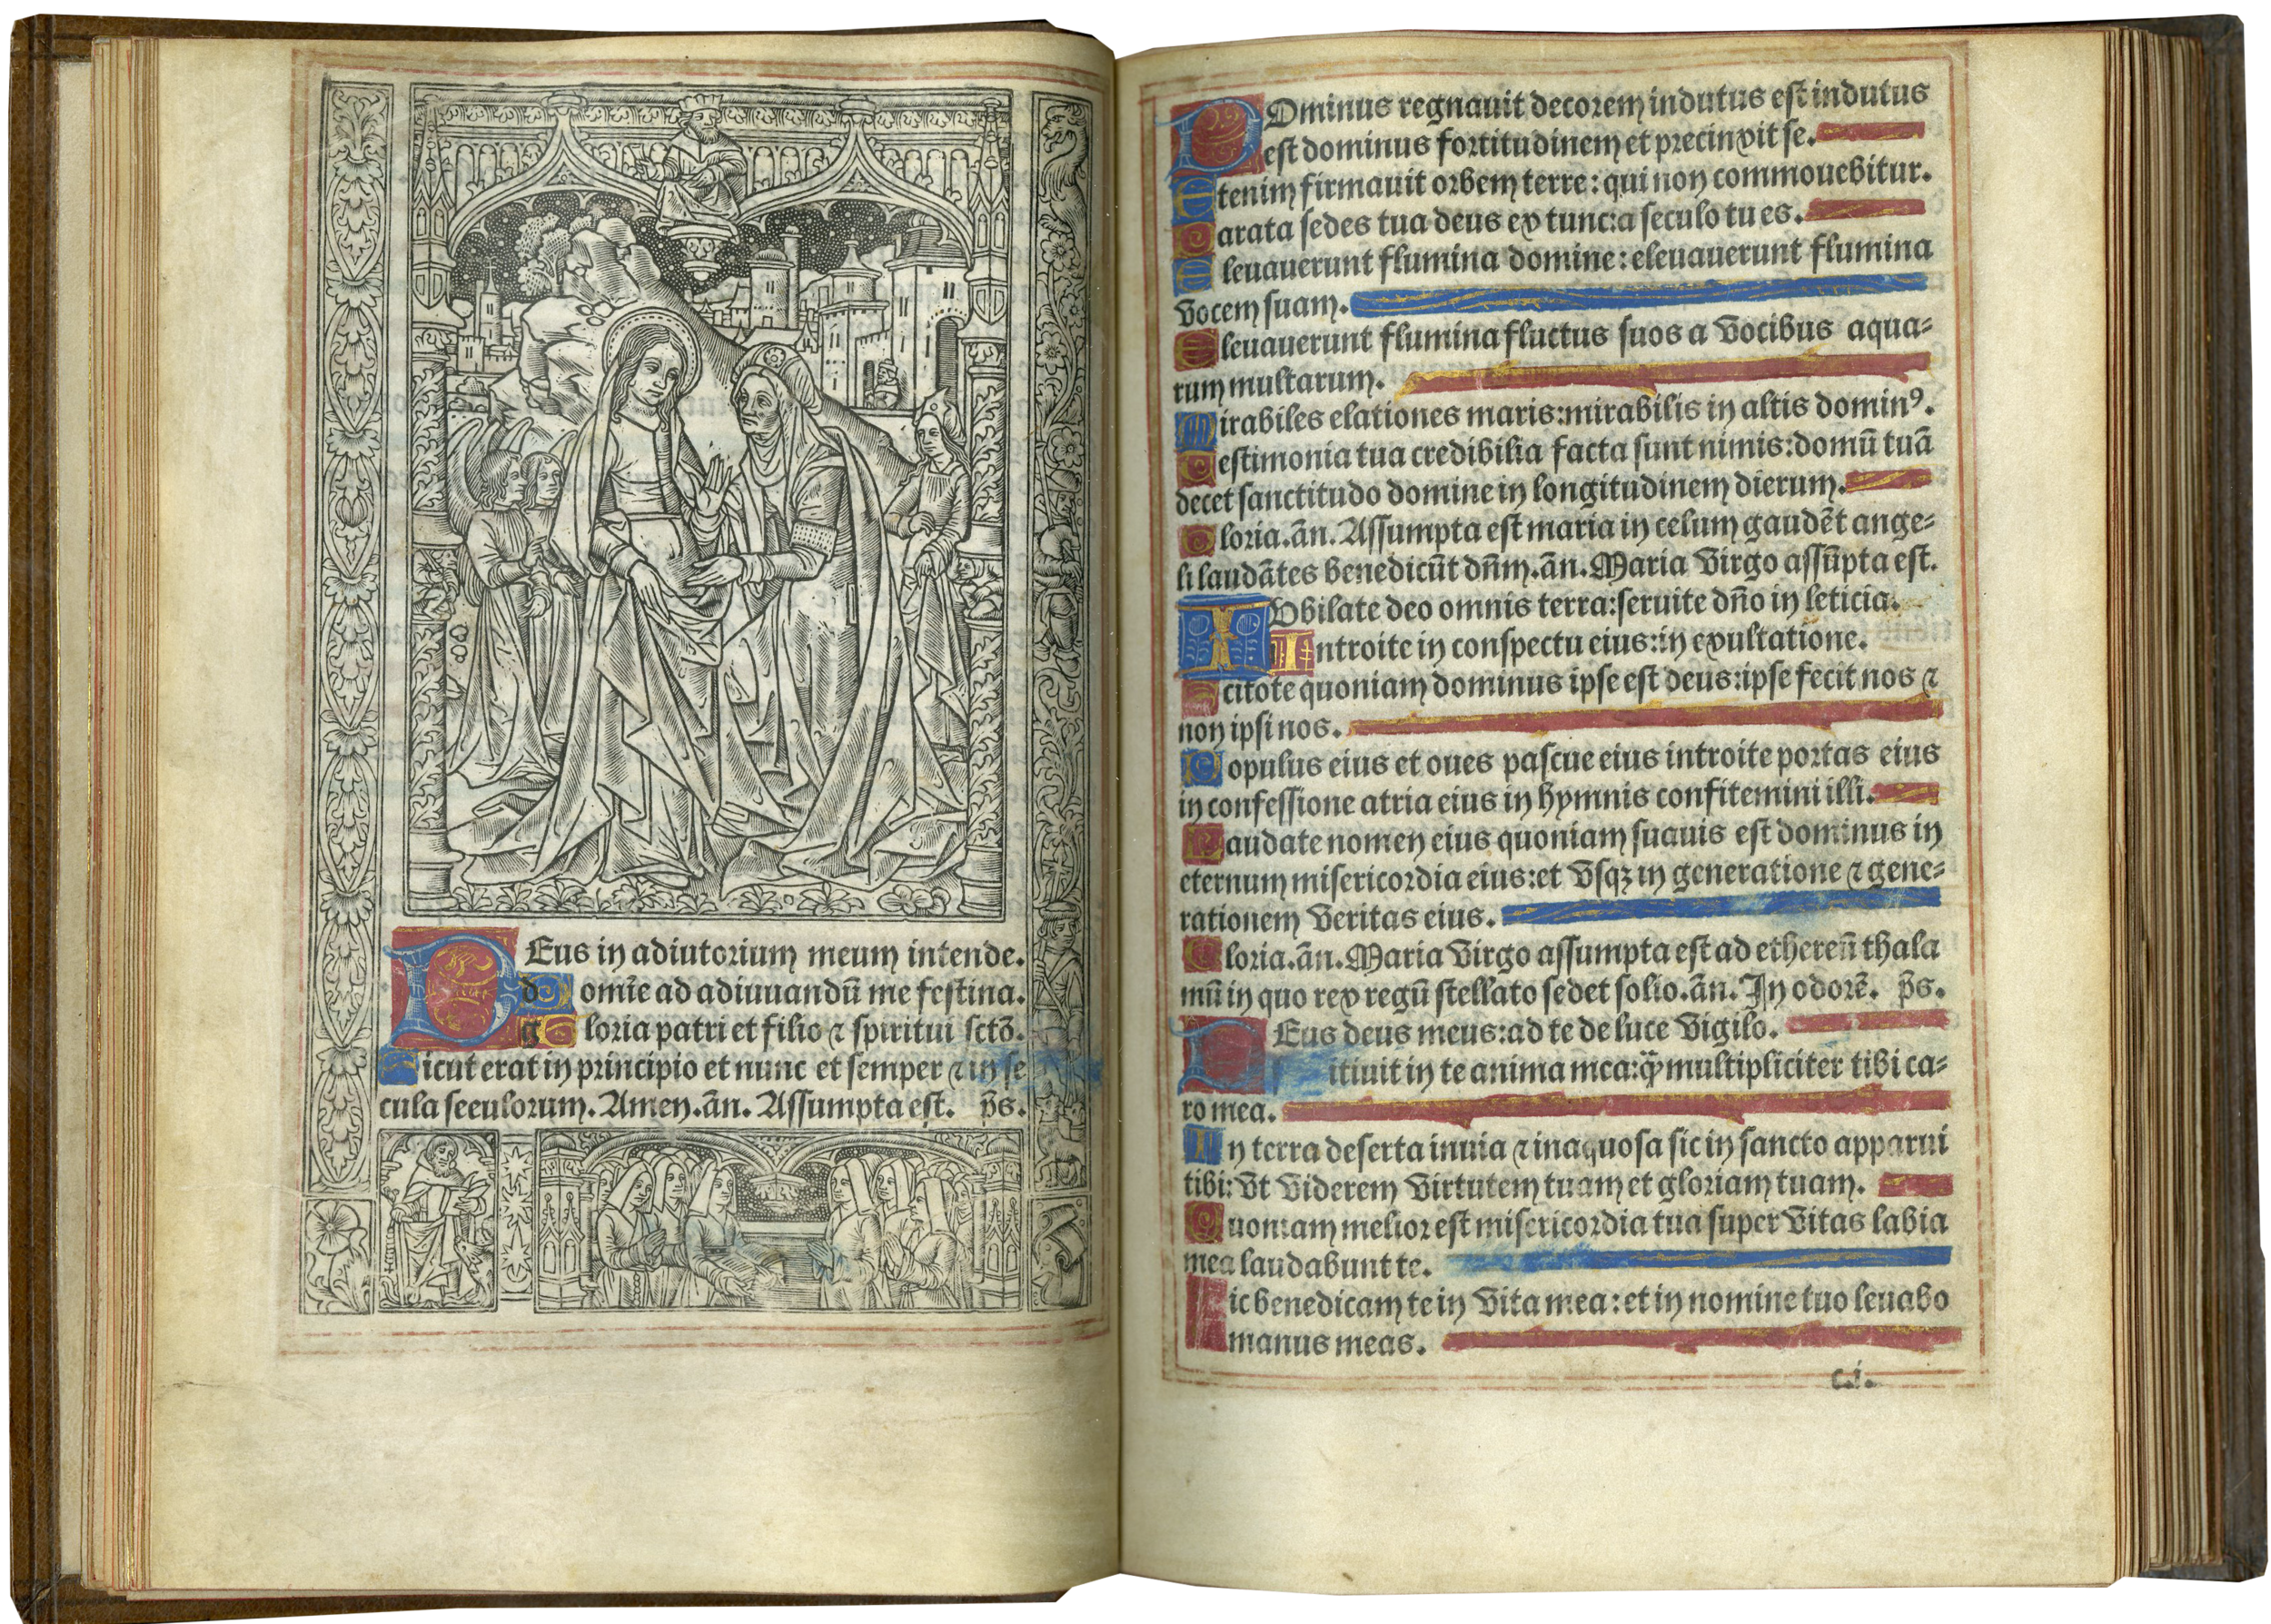 DEus in adiutorium meum intende.
d omĩe ad adiuuandũ me festina.
g loria patri et filio ⁊ spiritui sctõ.
Sicut erat in principio et nunc et semper ⁊ in se
cula seculorum. Amen. ãn. Assumpta est. p̃s.
DOminus regnauit decorem indutus est indutus
est dominus fortitudinem et precinxit se.
Etenim firmauit orbem terre: qui non commouebitur.
Parata sedes tua deus ex tunc: a seculo tu es.
Eleuauerunt flumina domine: eleuauerunt flumina
vocem suam.
Eleuauerunt flumina fluctus suos a vocibus aqua⸗
rum multarum.
Mirabiles elationes maris: mirabilis in altis dominꝰ.
Testimonia tua credibilia facta sunt nimis: domũ tuã
decet sanctitudo domine in longitudinem dierum.
Gloria. ãn. Assumpta est maria in celum gaudẽt ange⸗
li laudãtes benedicũt dñm. ãn. Maria virgo assũpta est.
IUbilate deo omnis terra: seruite dño in leticia.
Introite in conspectu eius: in exultatione.
Scitote quoniam dominus ipse est deus: ipse fecit nos ⁊
non ipsi nos.
Populus eius et oues pascue eius introite portas eius
in confessione atria eius in hymnis confitemini illi.
Laudate nomen eius quoniam suauis est dominus in
eternum misericordia eius: et vsqꝫ in generatione ⁊ gene⸗
rationem veritas eius.
Gloria. ãn. Maria virgo assumpta est ad ethereũ thala
mũ in quo rex regũ stellato sedet solio. ãn. In odorẽ. p̃s.
DEus deus meus: ad te de luce vigilo.
itiuit in te anima mea: q̃ multipliciter tibi ca⸗
ro mea.
In terra deserta inuia ⁊ inaquosa sic in sancto apparui
tibi: vt viderem virtutem tuam et gloriam tuam.
Quoniam melior est misericordia tua super vitas labia
mea laudabunt te.
Sic benedicam te in vita mea: et in nomine tuo leuabo
manus meas.
c.i.